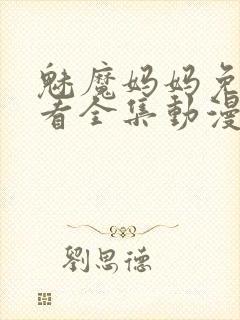 魅魔妈妈免
者全集動漫
劉思德